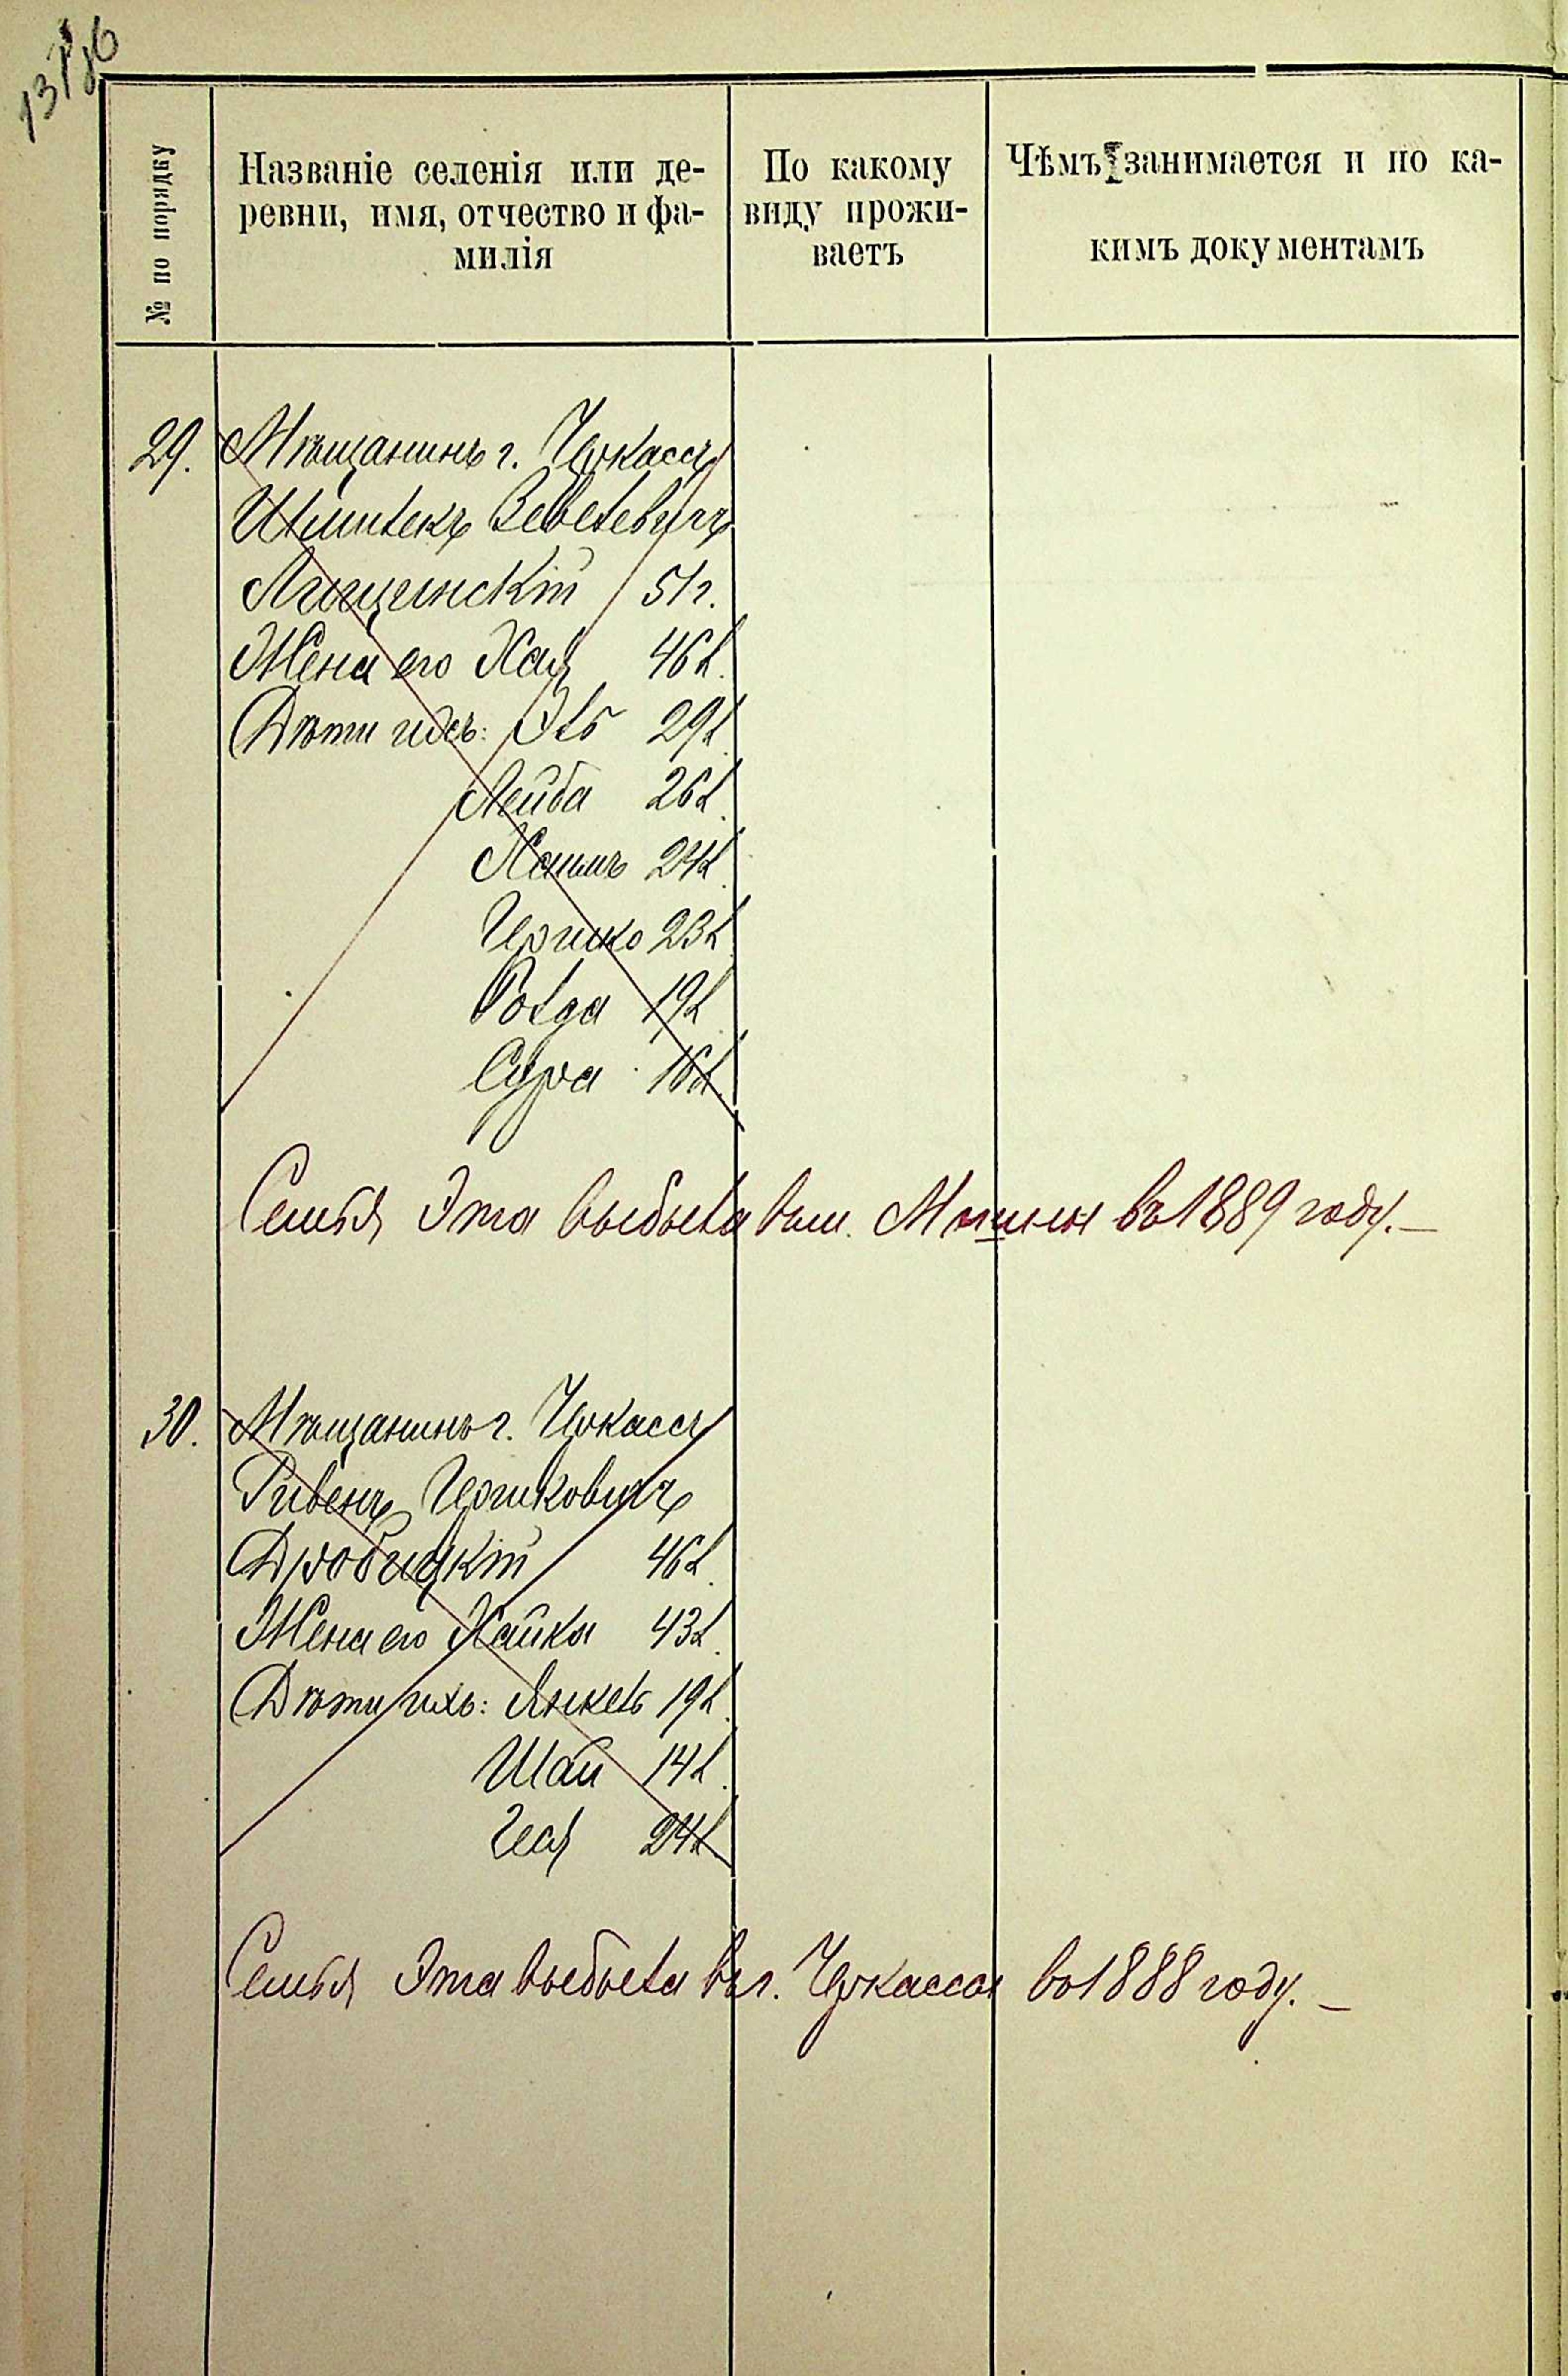 № по порядку
Названіе селенія или де-
ревни, имя, отчество и фа-
милія
По какому
виду прожи-
ваетъ
Чѣмъ занимается и по ка-
кимъ документамъ
29. Мѣщанинъ г. Черкассъ
Шмилекъ Вевелевичъ
Лищинскій 51 г.
Жена его Хая 46 л.
Дѣти ихъ: Эль 29 л.
Лейба 26 л.
Хаимъ 24 л.
Гершко 23 л.
Голда 19 л.
Сура 16 л.
Семья эта выбыла въ м. Мошны въ 1889 году.—
30. Мѣщанинъ г. Черкассъ
Рувенъ Гершковичъ
Дробицкій 46 л.
Жена его Хайка 43 л.
Дѣти ихъ: Янкель 19 л.
Шай 14 л.
Гея 24 л.
Семья эта выбыла въ г. Черкассы въ 1888 году.—